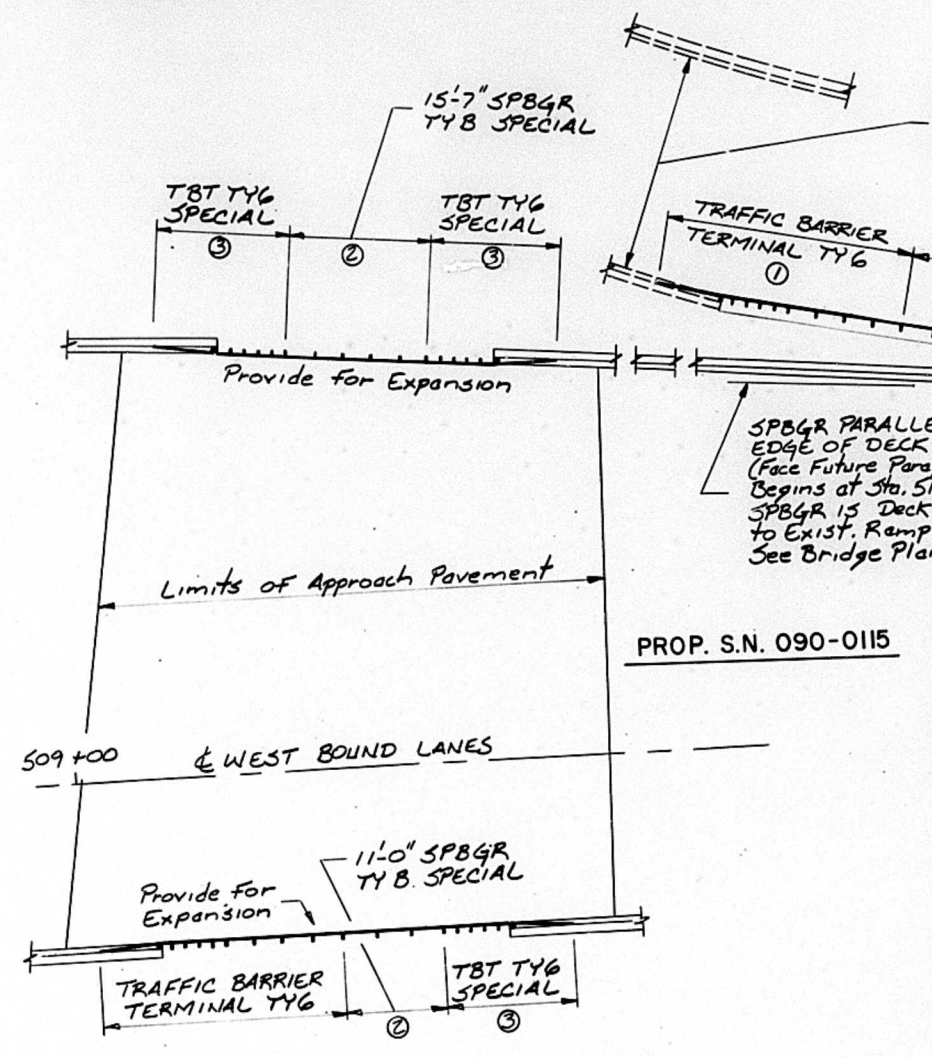 15'-7" SPBGR
TY B SPECIAL
TBT TY6
SPECIAL
③
②
TBT TY6
SPECIAL
③
TRAFFIC BARRIER
TERMINAL TY6
①
Provide for Expansion
SPBGR PARALLE
EDGE OF DECK
(Face Future Para
Begins at Sta. 51
SPBGR IS Deck
to Exist. Ramp
See Bridge Plan
Limits of Approach Pavement
PROP. S.N. 090-0115
509+00
℄ WEST BOUND LANES
11'-0" SPBGR
TY B. SPECIAL
Provide for
Expansion
TRAFFIC BARRIER
TERMINAL TY6
②
TBT TY6
SPECIAL
③